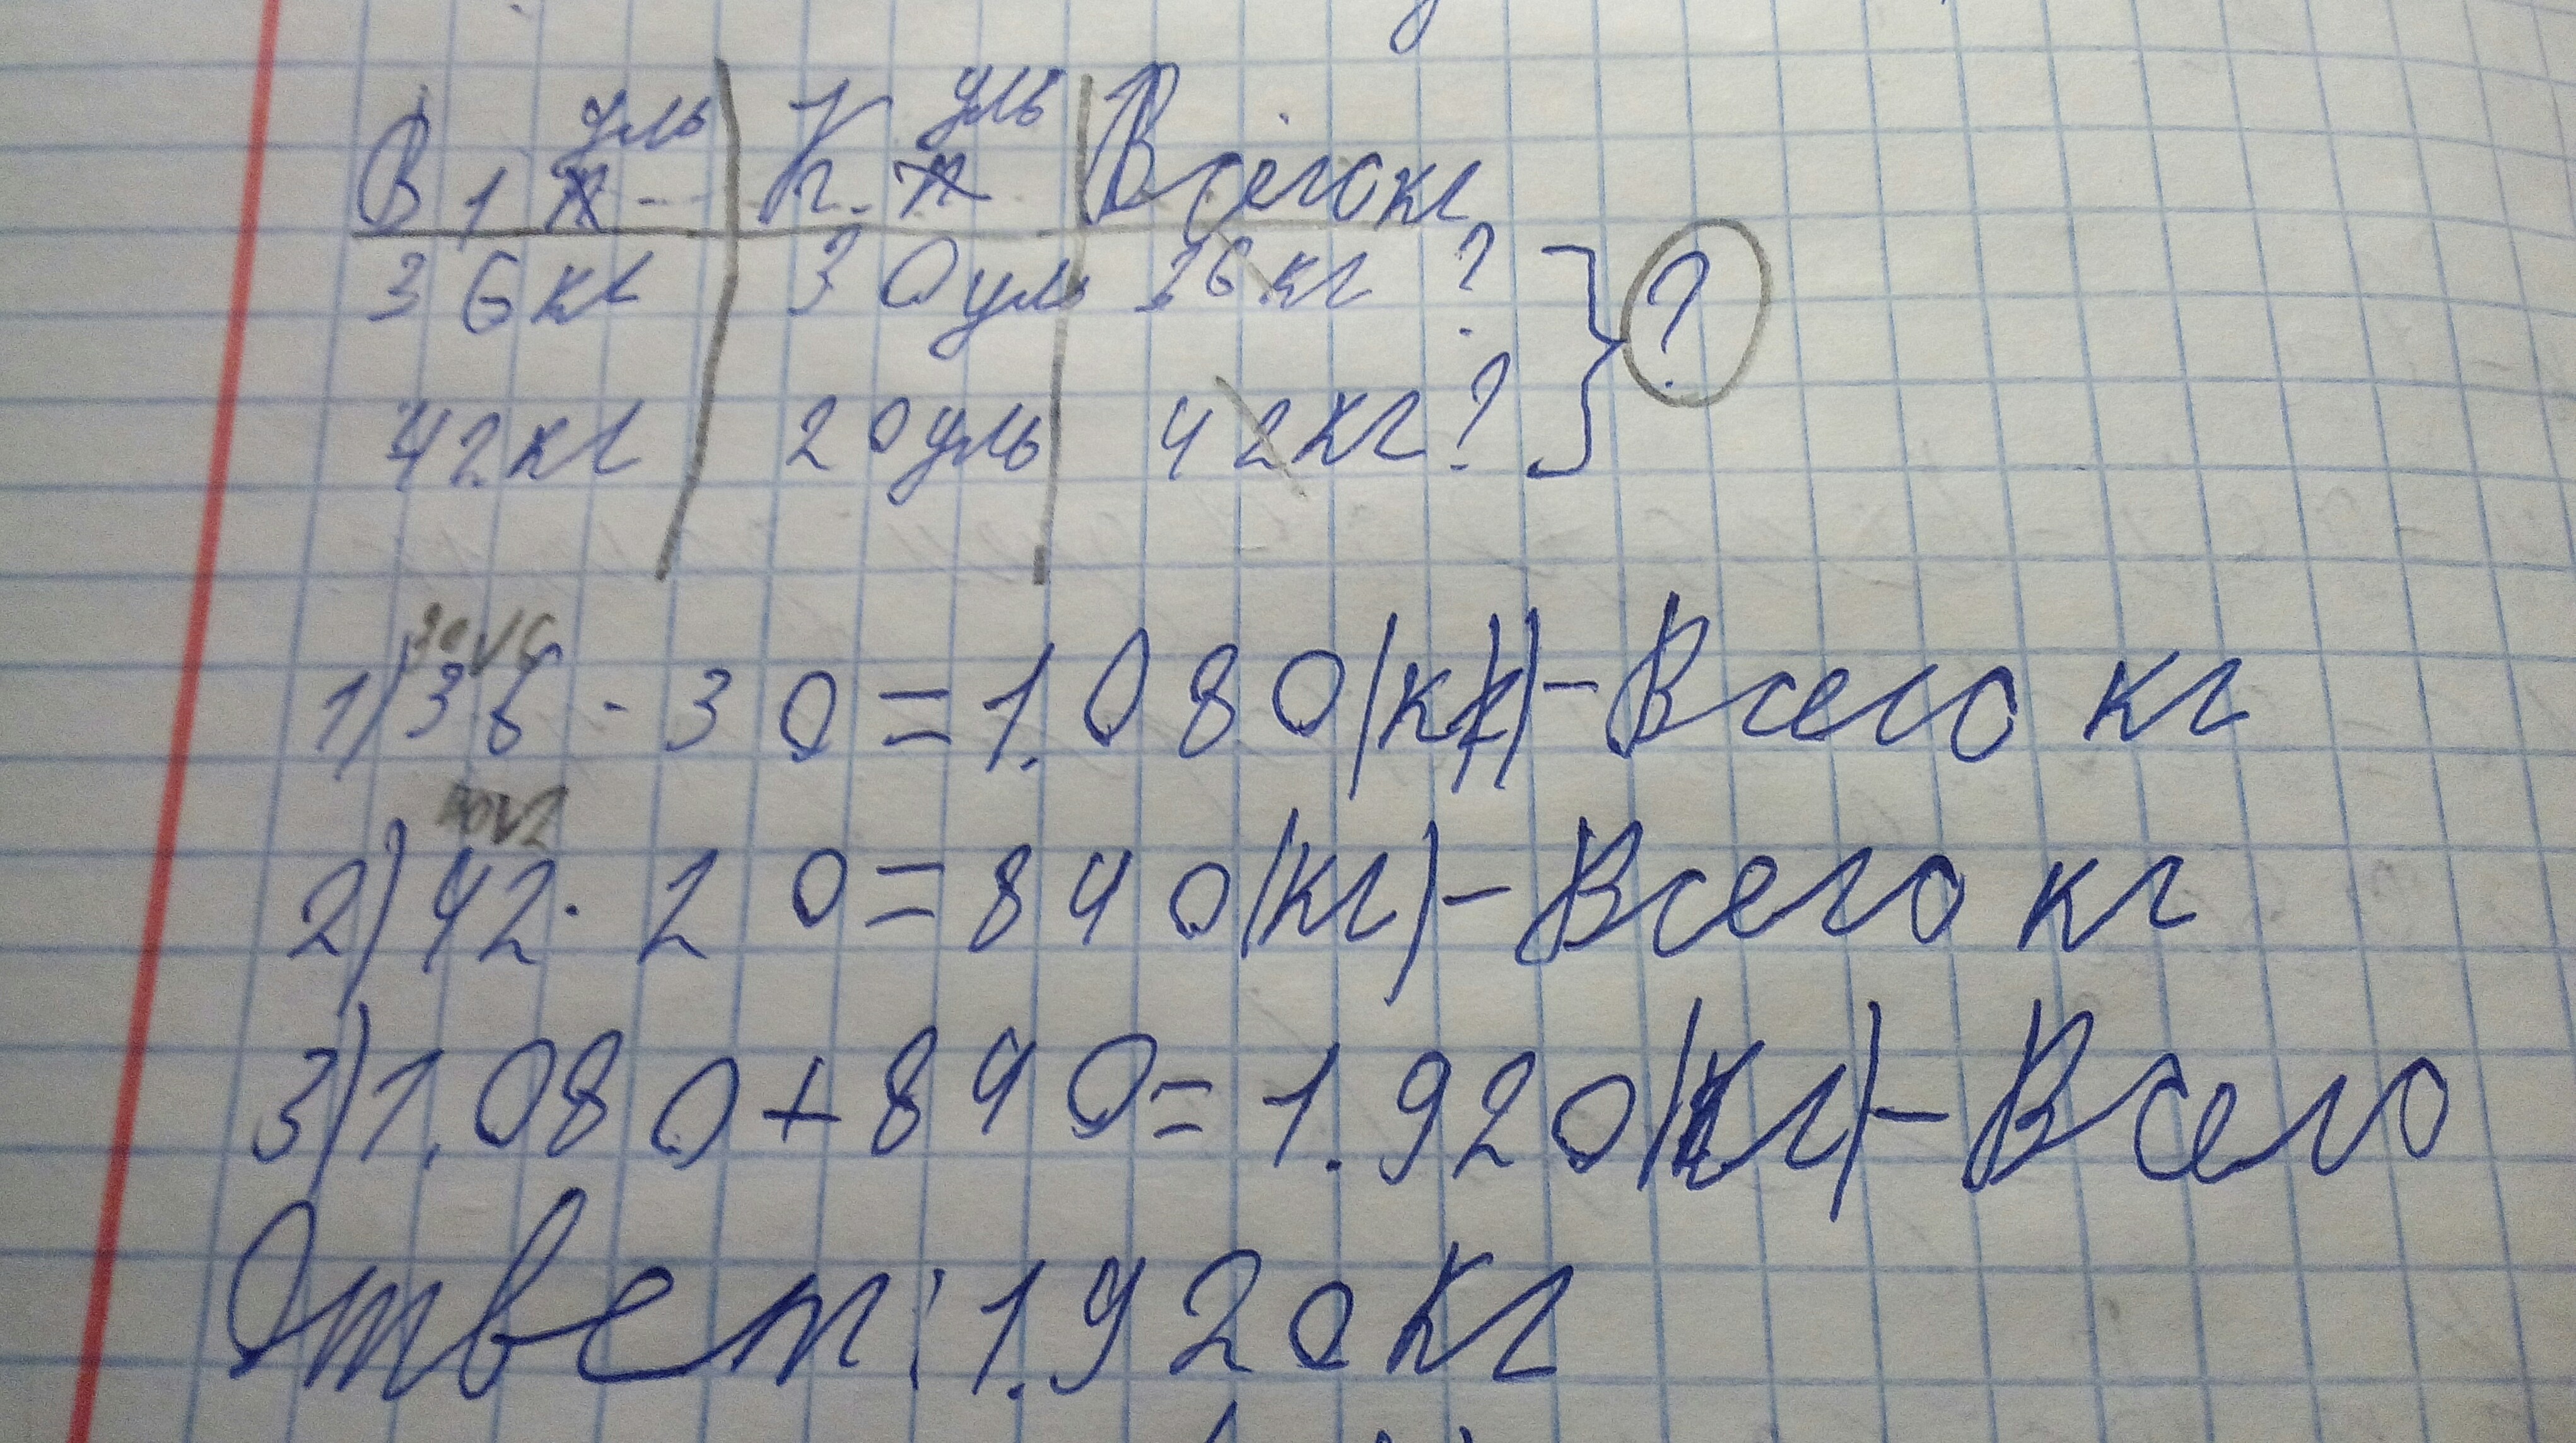 В 1 уль К. уль Всего кг
36 кг 30 уль 36 кг ? ?
42 кг 20 уль 42 кг ?
30 6
1) 36 · 30 = 1.080 (кг) - Всего кг
40 2
2) 42 · 20 = 840 (кг) - Всего кг
3) 1.080 + 840 = 1.920 (кг) - Всего
Ответ: 1.920 кг